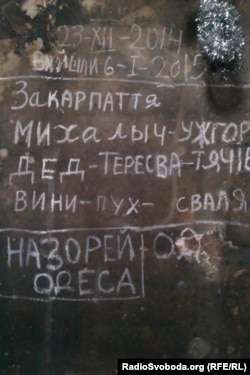 23-XII-2014
ВИЙШЛИ-6-I-2015
Закарпаття
МИХАЛЫЧ-УЖГОР
ДЕД-ТЕРЕСВА-ТЯЧІВ
ВИНИ-ПУХ- СВАЛЯ
НАЗОРЕЙ
ОДЕСА
RadioSvoboda.org (RFE/RL)